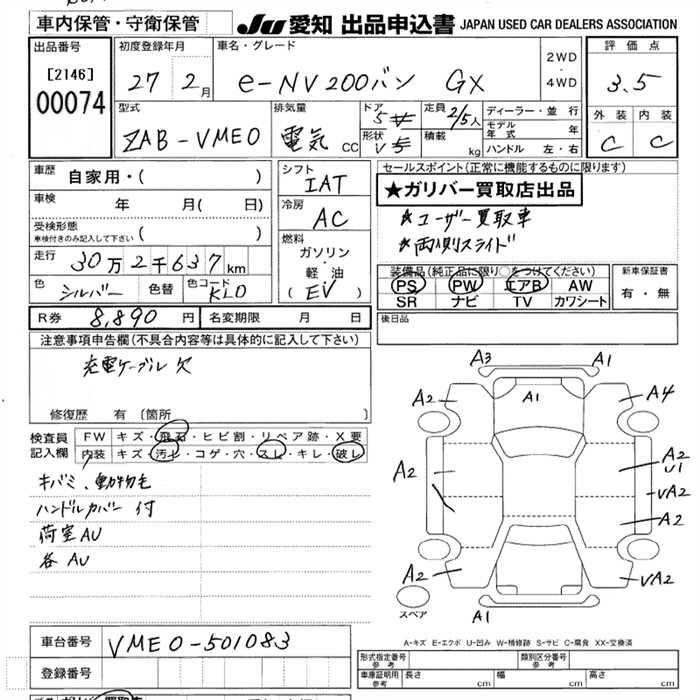 車内保管・守衛保管
JU 愛知 出品申込書 JAPAN USED CAR DEALERS ASSOCIATION
出品番号 初度登録年月 車名・グレード 評価点
[2146] 27 年 2月 e-NV200バン GX 2WD・4WD 3.5
00074
型式 排気量 ドア 定員 ディーラー・並行 外装 内装
ZAB-VME0 電気 CC 5 2/5人 モデル年式 年 C C
形状 V 積載 kg ハンドル 左・右
車歴 自家用・( ) シフト IAT セールスポイント(正常に機能するものに限ります)
★ガリバー買取店出品
車検 年 月( 日) 冷房 AC
★ユーザー買取車
受検形態 車検付きのみ記入して下さい ( )
★両側スライド
走行 30万2千637km 燃料 ガソリン・軽油 (EV)
装備品(純正品に限り○をつけてください) 新車保証書
色 シルバー 色替 色コード KL0
PS PW エアB AW 有・無
SR ナビ TV カワシート
R券 8,890円 名変期限 月 日 後日品
注意事項申告欄(不具合内容等は具体的に記入して下さい)
充電ケーブル欠
修復歴 有 〔箇所 〕
検査員記入欄 FW キズ・飛石・ヒビ割・リペア跡・X要
内装 キズ・汚れ・コゲ・穴・スレ・キレ・破レ
キバミ、動物毛
ハンドルカバー付
荷室AU
各AU
A3 A1
A2 A1 A4
A2 A2
U1
VA2
A2
A2 VA2
スペア A1
A-キズ E-エクボ U-凹み W-補修跡 S-サビ C-腐食 XX-交換済
車台番号 VME0-501083
登録番号
形式指定番号 参考 類別区分番号 参考
車庫証明用 参考 長さ cm 幅 cm 高さ cm